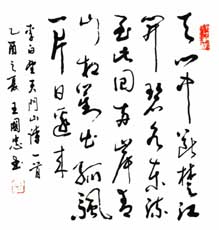 天门中断楚江
開碧水东流
至此回两岸青
山相對出孤颿
一片日邊来
李白望天門山诗一首
乙酉之夏王國忠書